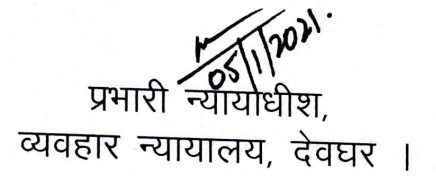 05/1/2021.
प्रभारी न्यायाधीश,
व्यवहार न्यायालय, देवघर ।